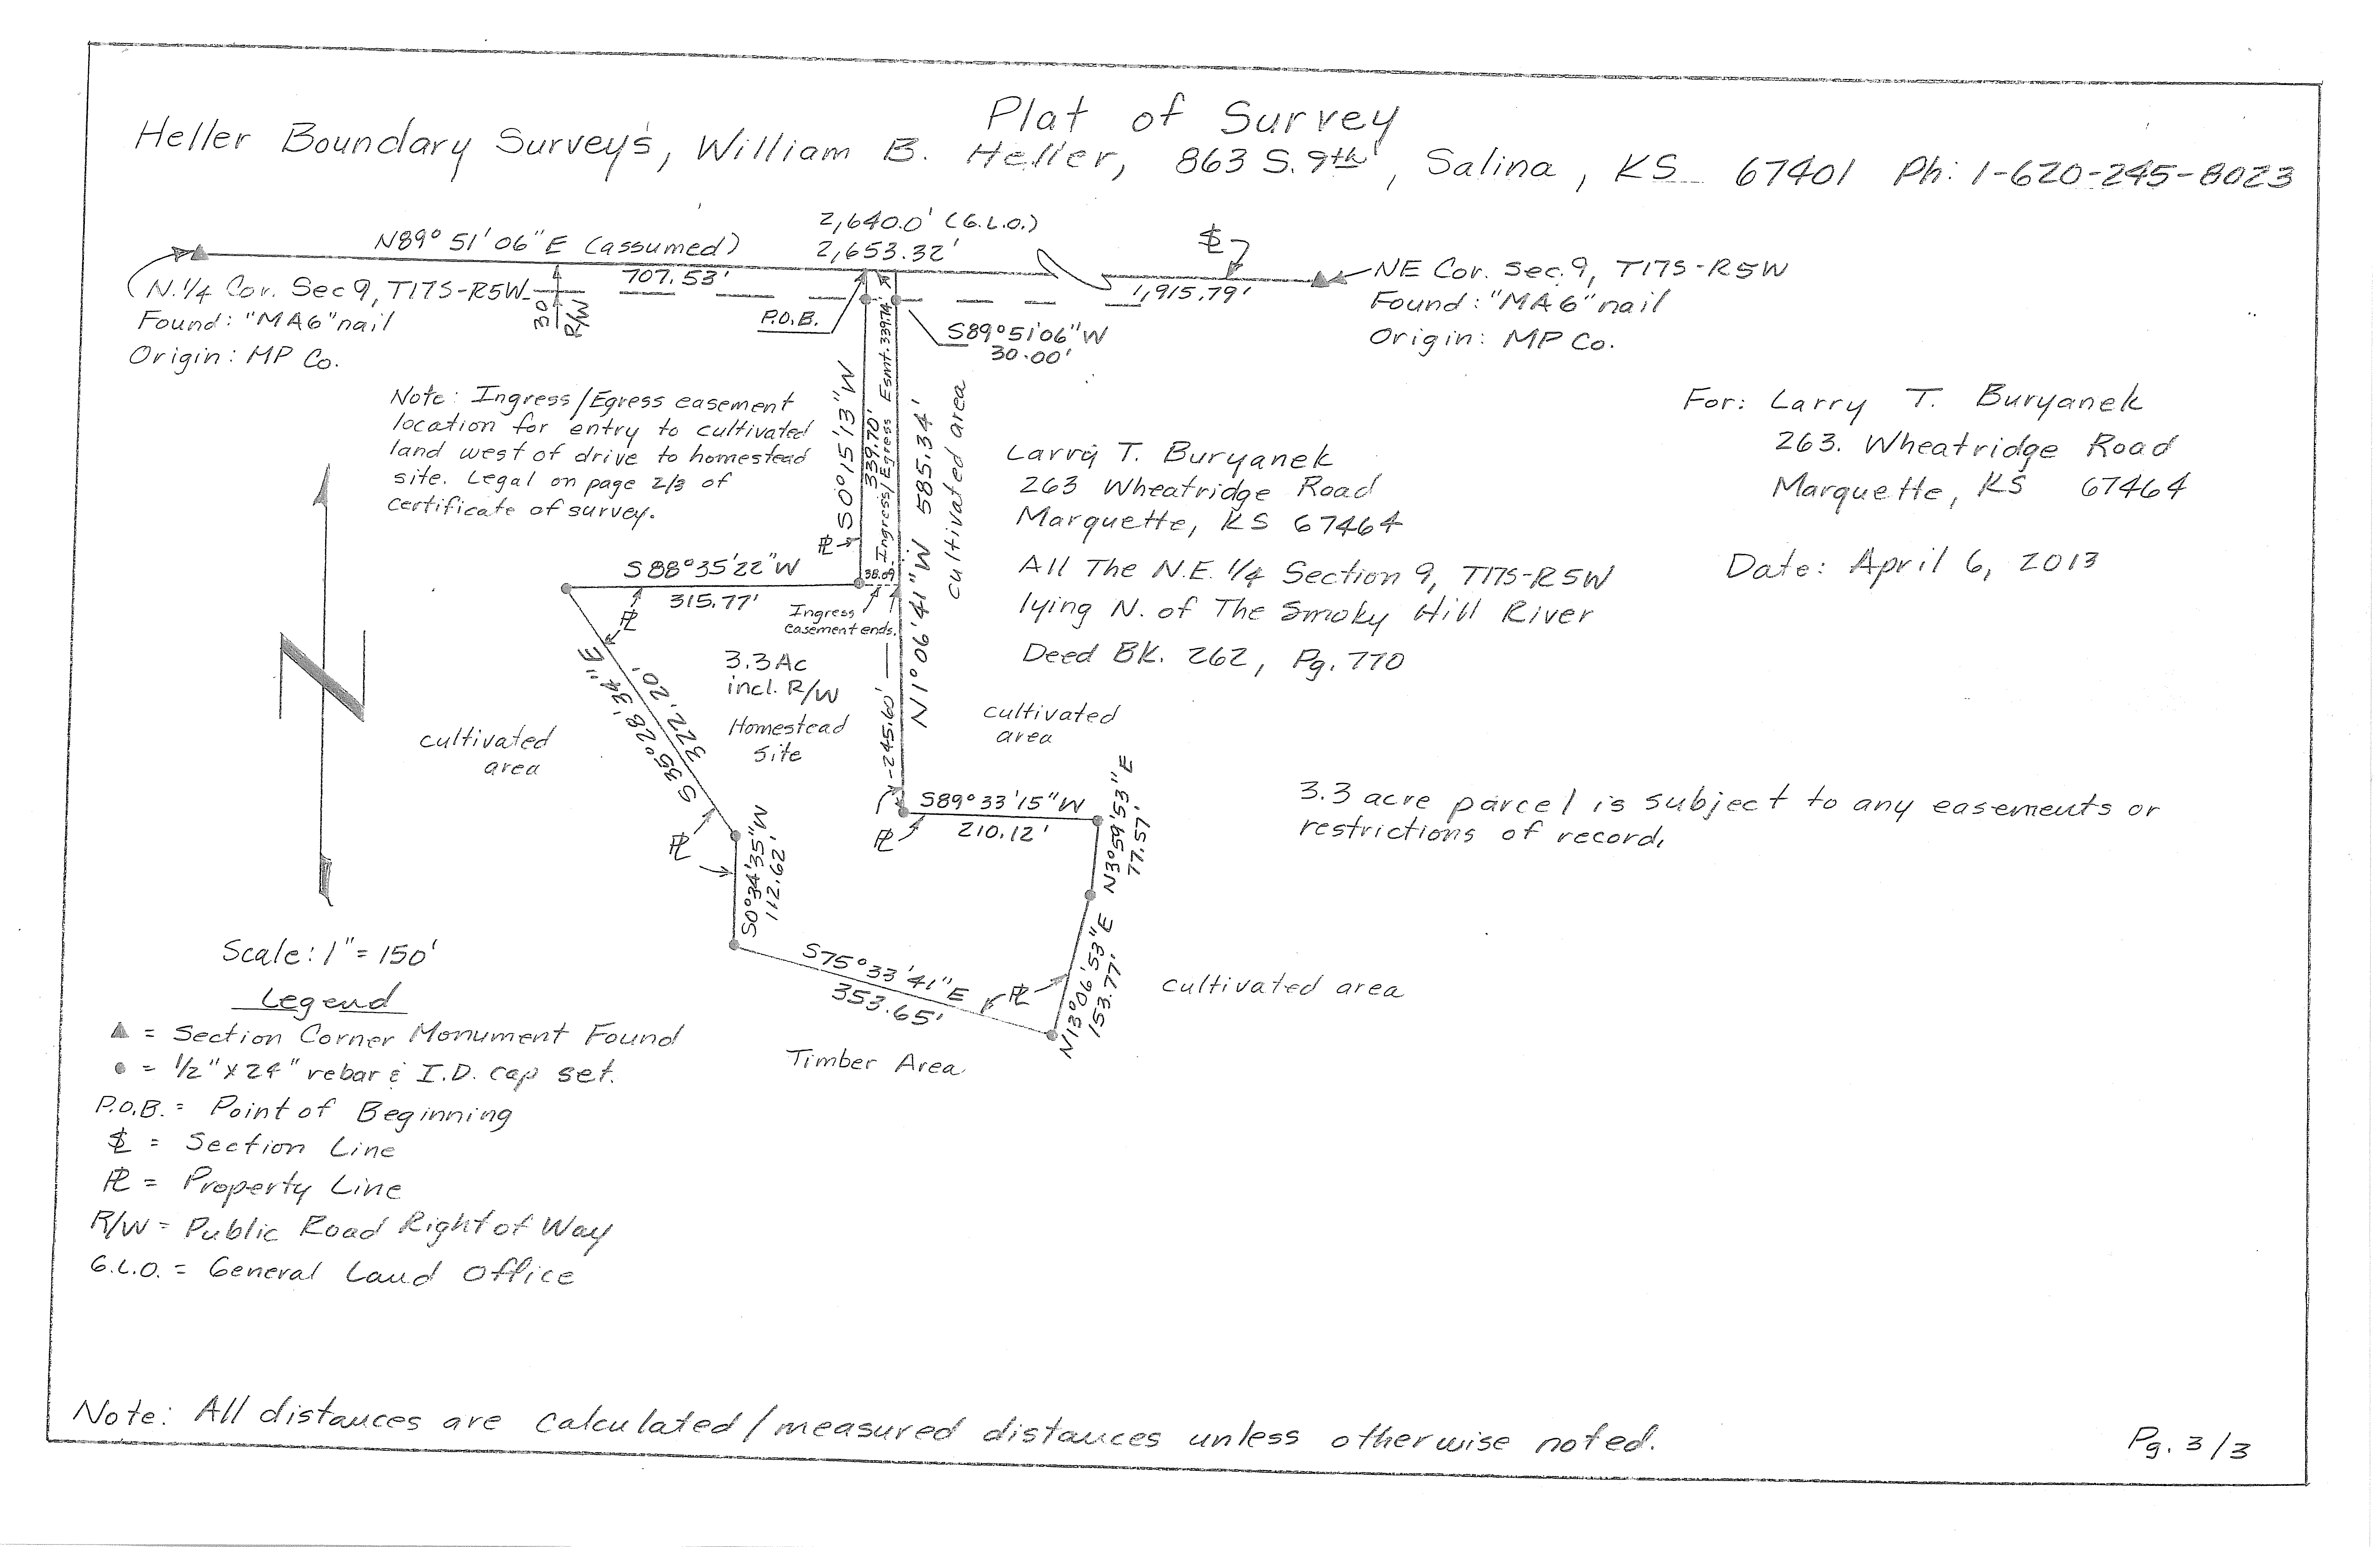 Plat of Survey
Heller Boundary Survey's, William B. Heller, 863 S. 9th, Salina, KS 67401 Ph: 1-620-245-8023
2,640.0' (G.L.O.)
N89° 51' 06" E (assumed)
2,653.32'
707.53'
1,915.79'
N. 1/4 Cor. Sec 9, T17S-R5W
Found: "MAG" nail
Origin: MP Co.
30'
R/W
P.O.B.
S89°51'06"W
30.00'
NE Cor. Sec. 9, T17S-R5W
Found: "MAG" nail
Origin: MP Co.
Note: Ingress/Egress easement
location for entry to cultivated
land west of drive to homestead
site. Legal on page 2/3 of
certificate of survey.
S0°15'13"W
339.70'
Ingress/Egress Esmt. 339.74'
N1°06'41"W 585.34'
cultivated area
Larry T. Buryanek
263 Wheatridge Road
Marquette, KS 67464
All The N.E. 1/4 Section 9, T17S-R5W
lying N. of The Smoky Hill River
Deed BK. 262, Pg. 770
For: Larry T. Buryanek
263. Wheatridge Road
Marquette, KS 67464
Date: April 6, 2013
S88°35'22"W
315.77'
38.09'
Ingress
easement ends.
3.3 Ac
incl. R/W
Homestead
Site
S35°28'34"E
322.20'
245.60'
cultivated
area
cultivated
area
S89°33'15"W
210.12'
N3°59'53"E
77.57'
S0°34'35"W
112.62'
S75°33'41"E
353.65'
N13°06'53"E
153.77'
cultivated area
Timber Area
3.3 acre parcel is subject to any easements or
restrictions of record.
N
Scale: 1" = 150'
Legend
▲ = Section Corner Monument Found
● = 1/2" x 24" rebar & I.D. cap set.
P.O.B. = Point of Beginning
SL = Section Line
PL = Property Line
R/W = Public Road Right of Way
G.L.O. = General Land Office
Note: All distances are calculated/measured distances unless otherwise noted.
Pg. 3/3